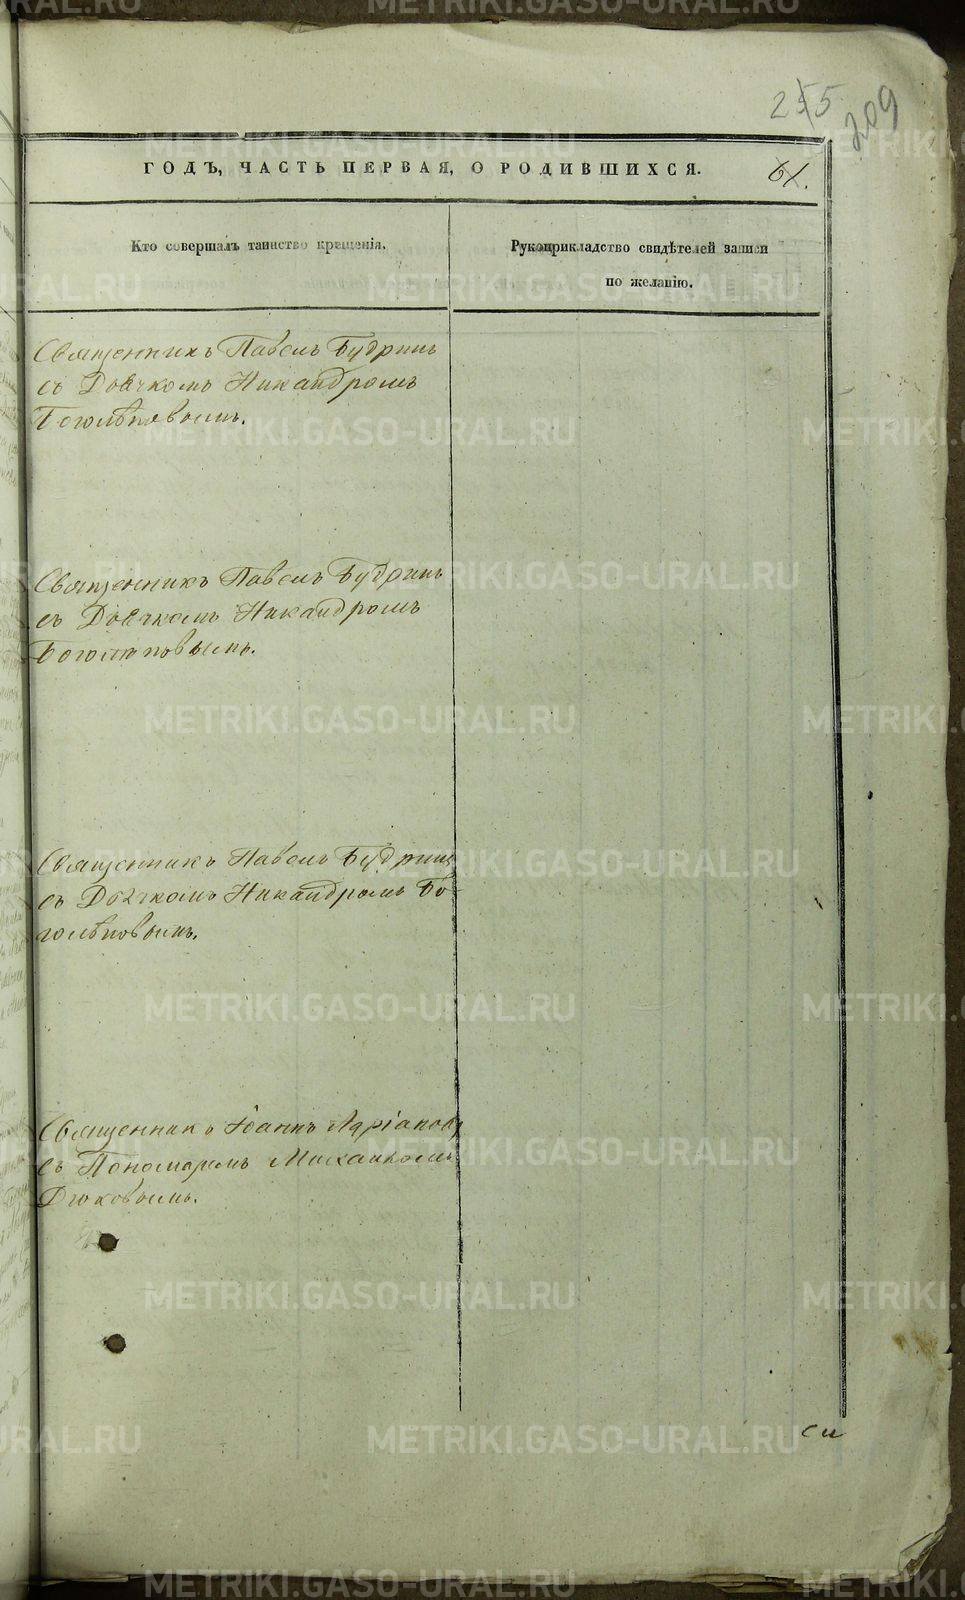 255
209
ГОДЪ, ЧАСТЬ ПЕРВАЯ, О РОДИВШИХСЯ.
61.
Кто совершалъ таинство крещенія.
Рукоприкладство свидѣтелей записи
по желанію.
Священникъ Павелъ Будринъ
съ Дьячкомъ Никандромъ
Боголѣповымъ.
Священникъ Павелъ Будринъ
съ Дьячкомъ Никандромъ
Боголѣповымъ.
Священникъ Павелъ Будринъ
съ Дьячкомъ Никандромъ Бо-
голѣповымъ.
Священникъ Іоаннъ Адріановъ
съ Пономаремъ Михаиломъ
METRIKI.GASO-URAL.RU